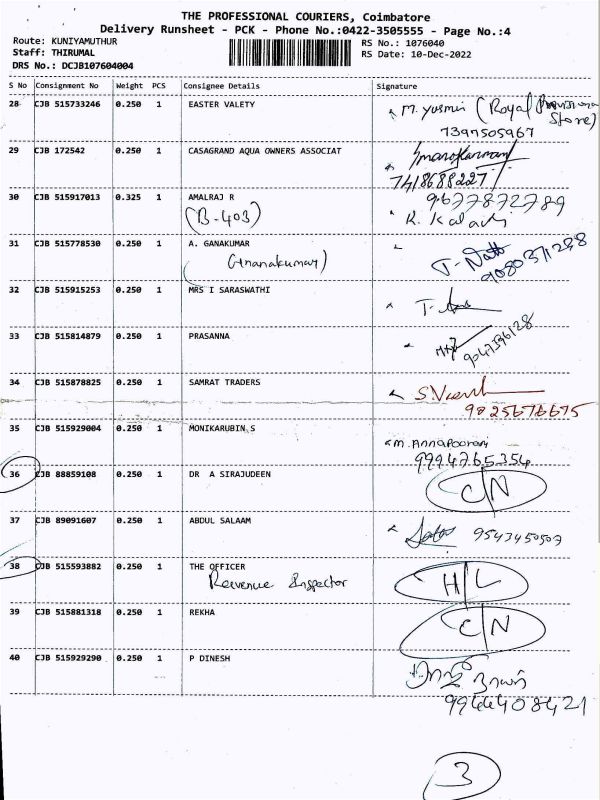 THE PROFESSIONAL COURIERS, Coimbatore
Delivery Runsheet - PCK - Phone No.:0422-3505555 - Page No.:4
Route: KUNIYAMUTHUR RS No.: 1076040
Staff: THIRUMAL RS Date: 10-Dec-2022
DRS No.: DCJB107604004
S No Consignment No Weight PCS Consignee Details Signature
28 CJB 515733246 0.250 1 EASTER VALETY M. Yusmin (Royal
Store)
7397505967
29 CJB 172542 0.250 1 CASAGRAND AQUA OWNERS ASSOCIAT
7418688227
30 CJB 515917013 0.325 1 AMALRAJ R 9677872789
(B-403) K. Kalavi
31 CJB 515778530 0.250 1 A. GANAKUMAR
(Gnanakumar) 9080371238
32 CJB 515915253 0.250 1 MRS I SARASWATHI
33 CJB 515814879 0.250 1 PRASANNA
9047396128
34 CJB 515878825 0.250 1 SAMRAT TRADERS
9825676675
35 CJB 515929004 0.250 1 MONIKARUBIN S M. Annapoorani
9994765354
36 CJB 88859108 0.250 1 DR A SIRAJUDEEN C/N
37 CJB 89091607 0.250 1 ABDUL SALAAM 9543450507
38 CJB 515593882 0.250 1 THE OFFICER H/L
Revenue Inspector
39 CJB 515881318 0.250 1 REKHA C/N
40 CJB 515929290 0.250 1 P DINESH
9944408421
3